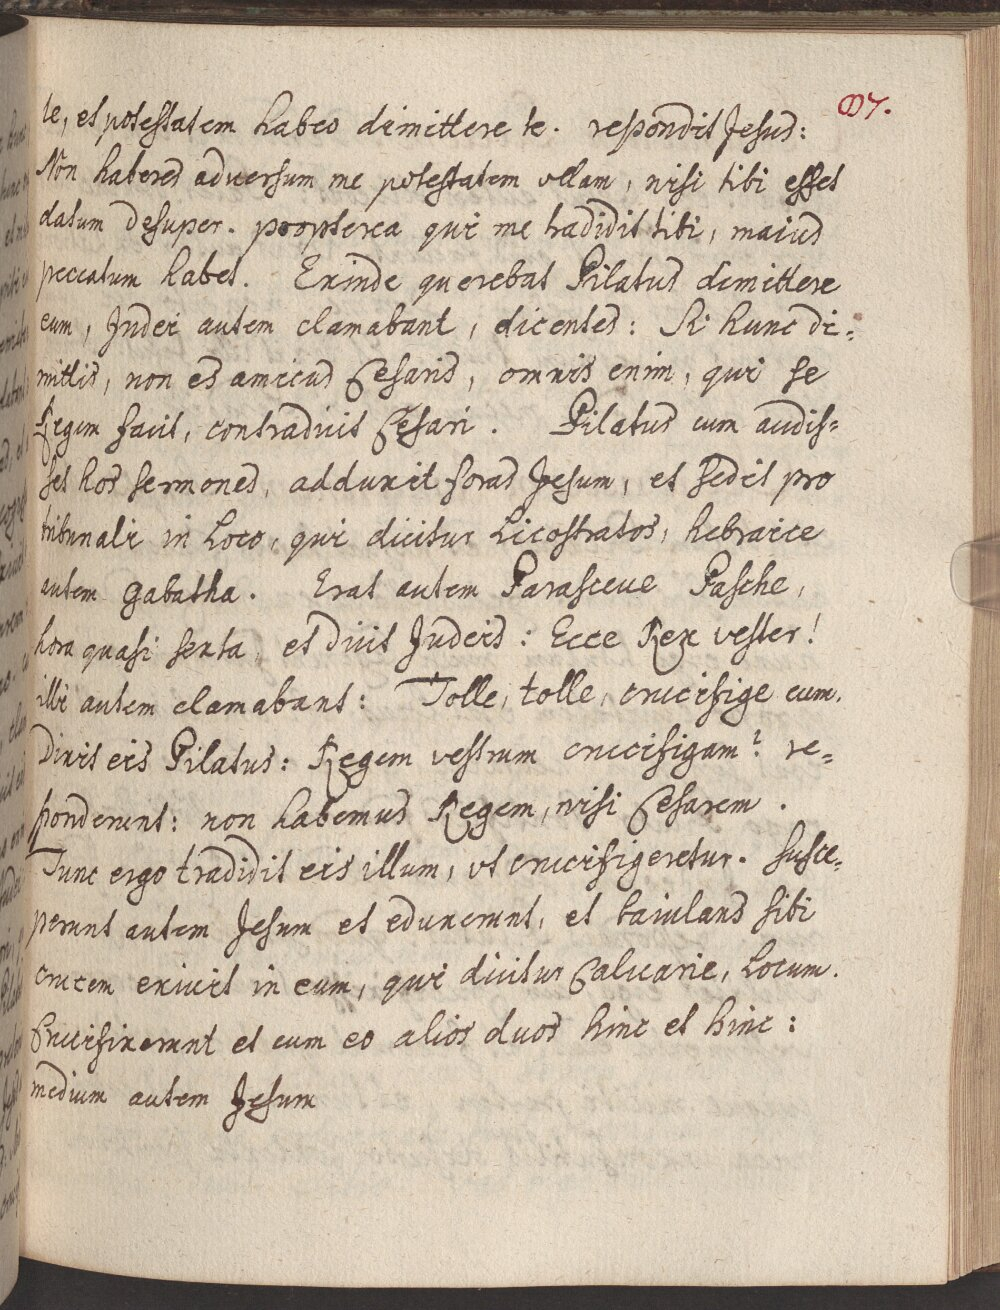 107.
te, et potestatem habeo dimittere te. respondit Jesus:
Non haberes adversum me potestatem vllam, nisi tibi esset
datum desuper. propterea qui me tradidit tibi, maius
peccatum habet. Exinde querebat Pilatus dimittere
eum, Judei autem clamabant, dicentes: Si hunc di-
mittis, non es amicus Cesaris, omnis enim, qui se
Regem facit, contradicit Cesari. Pilatus cum audis-
set hos sermones, adduxit foras Jesum, et sedit pro
tribunali in Loco, qui dicitur Licostratos, hebraice
autem gabatha. Erat autem Parasceue Pasche,
hora quasi sexta, et dicit Judeis: Ecce Rex vester!
illi autem clamabant: Tolle, tolle, crucifige eum.
Dixit eis Pilatus: Regem vestrum crucifigam? re-
sponderunt: non habemus Regem, nisi Cesarem.
Tunc ergo tradidit eis illum, vt crucifigeretur. susce-
perunt autem Jesum et eduxerunt, et baiulans sibi
crucem exivit in eum, qui dicitur Caluarie, Locum.
Crucifixerunt et cum eo alios duos hinc et hinc:
medium autem Jesum